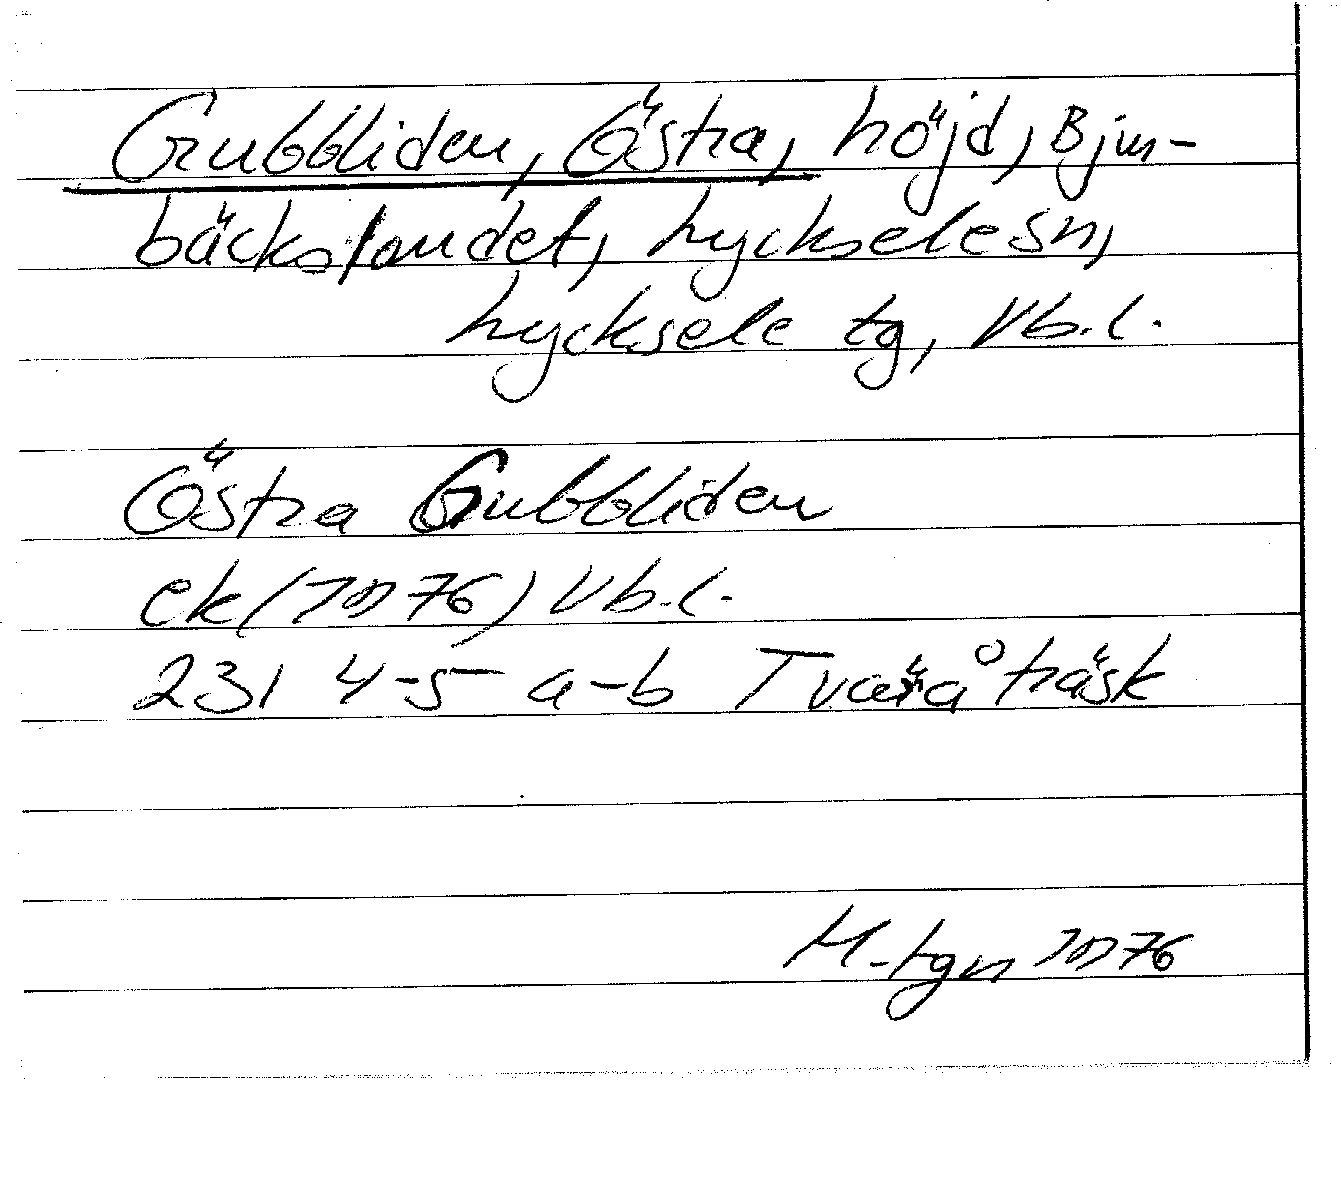 Gubbliden, Östra, höjd, Bjur-
bäckslandet, Lycksele sn,
Lycksele tg, Vb.l.
Östra Gubbliden
ek Vb.l.
23I 4-5 a-b Tväråträsk